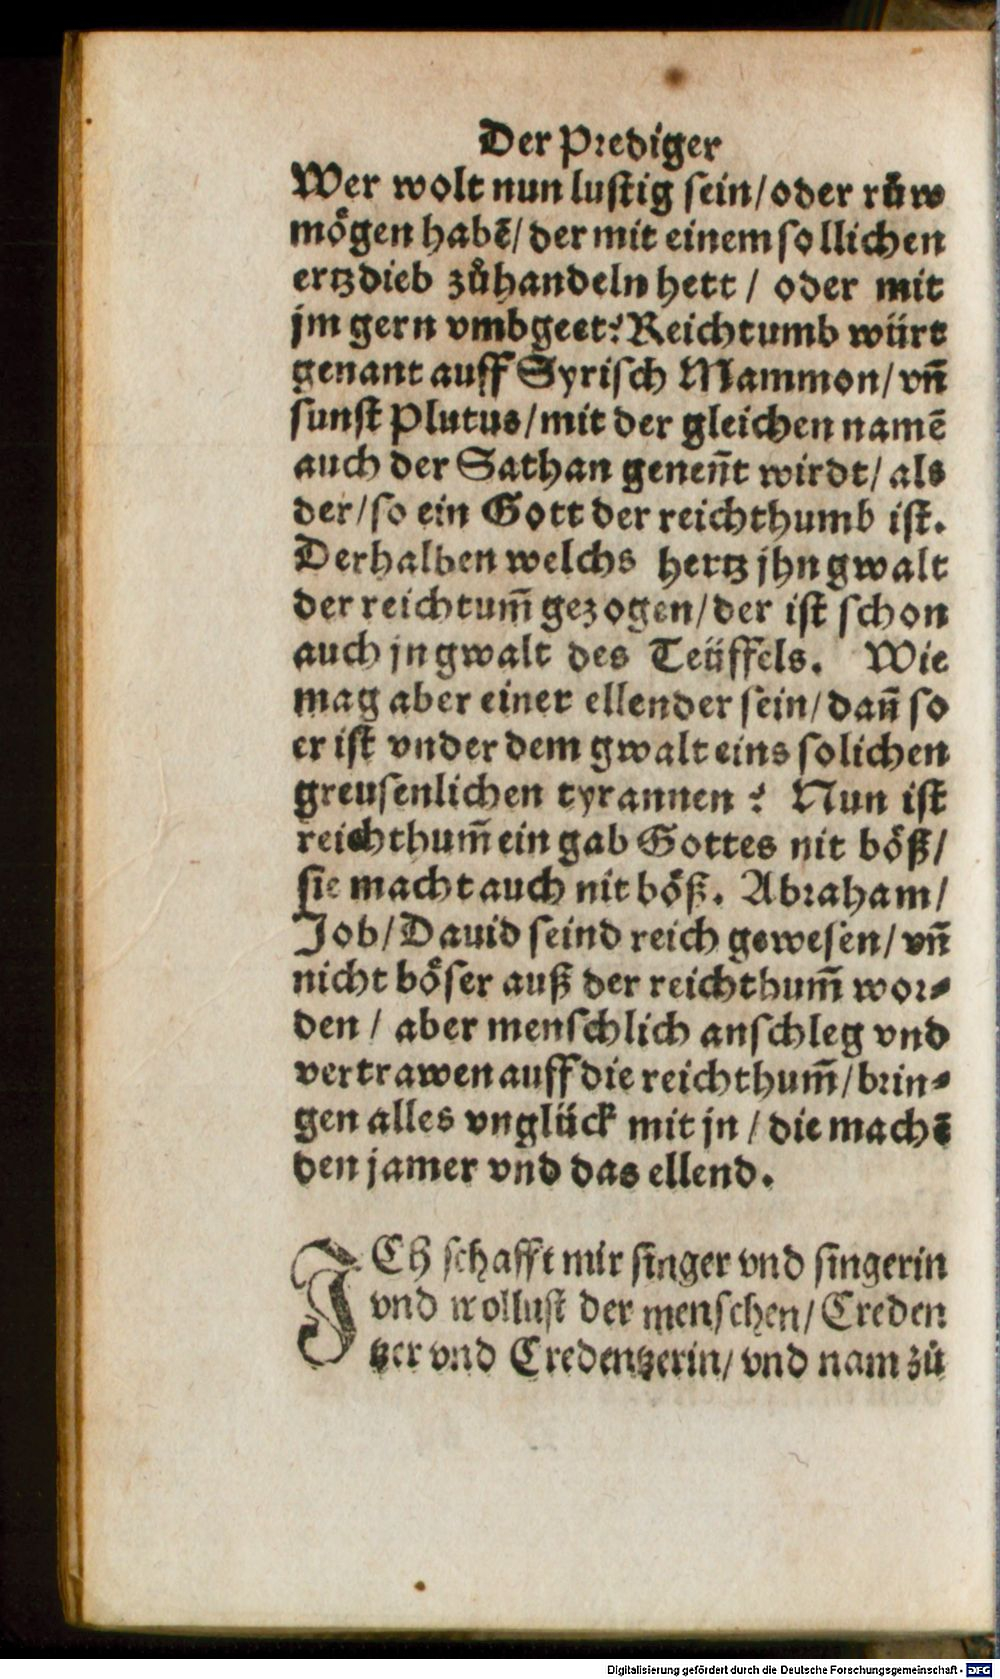 Der Prediger
Wer wolt nun lustig sein/oder růw
mögen habē/der mit einem sollichen
ertzdieb zůhandeln hett / oder mit
jm gern vmbgeet? Reichtumb würt
genant auff Syrisch Mammon/vn̄
sunst Plutus/mit der gleichen namē
auch der Sathan genen̄t wirdt/als
der/so ein Gott der reichthumb ist.
Derhalben welchs hertz jhn gwalt
der reichtum̄ gezogen/der ist schon
auch jn gwalt des Teüffels. Wie
mag aber einer ellender sein/dan̄ so
er ist vnder dem gwalt eins solichen
greusenlichen tyrannen? Nun ist
reichthum̄ ein gab Gottes nit böß/
sie macht auch nit böß. Abraham/
Job/Dauid seind reich gewesen/vn̄
nicht böser auß der reichthum̄ wor-
den / aber menschlich anschleg vnd
vertrawen auff die reichthum̄/brin-
gen alles vnglück mit jn / die machē
den jamer vnd das ellend.
ICH schafft mir singer vnd singerin
vnd wollust der menschen/Creden
tzer vnd Credentzerin/vnd nam zů
Digitalisierung gefördert durch die Deutsche Forschungsgemeinschaft - DFG